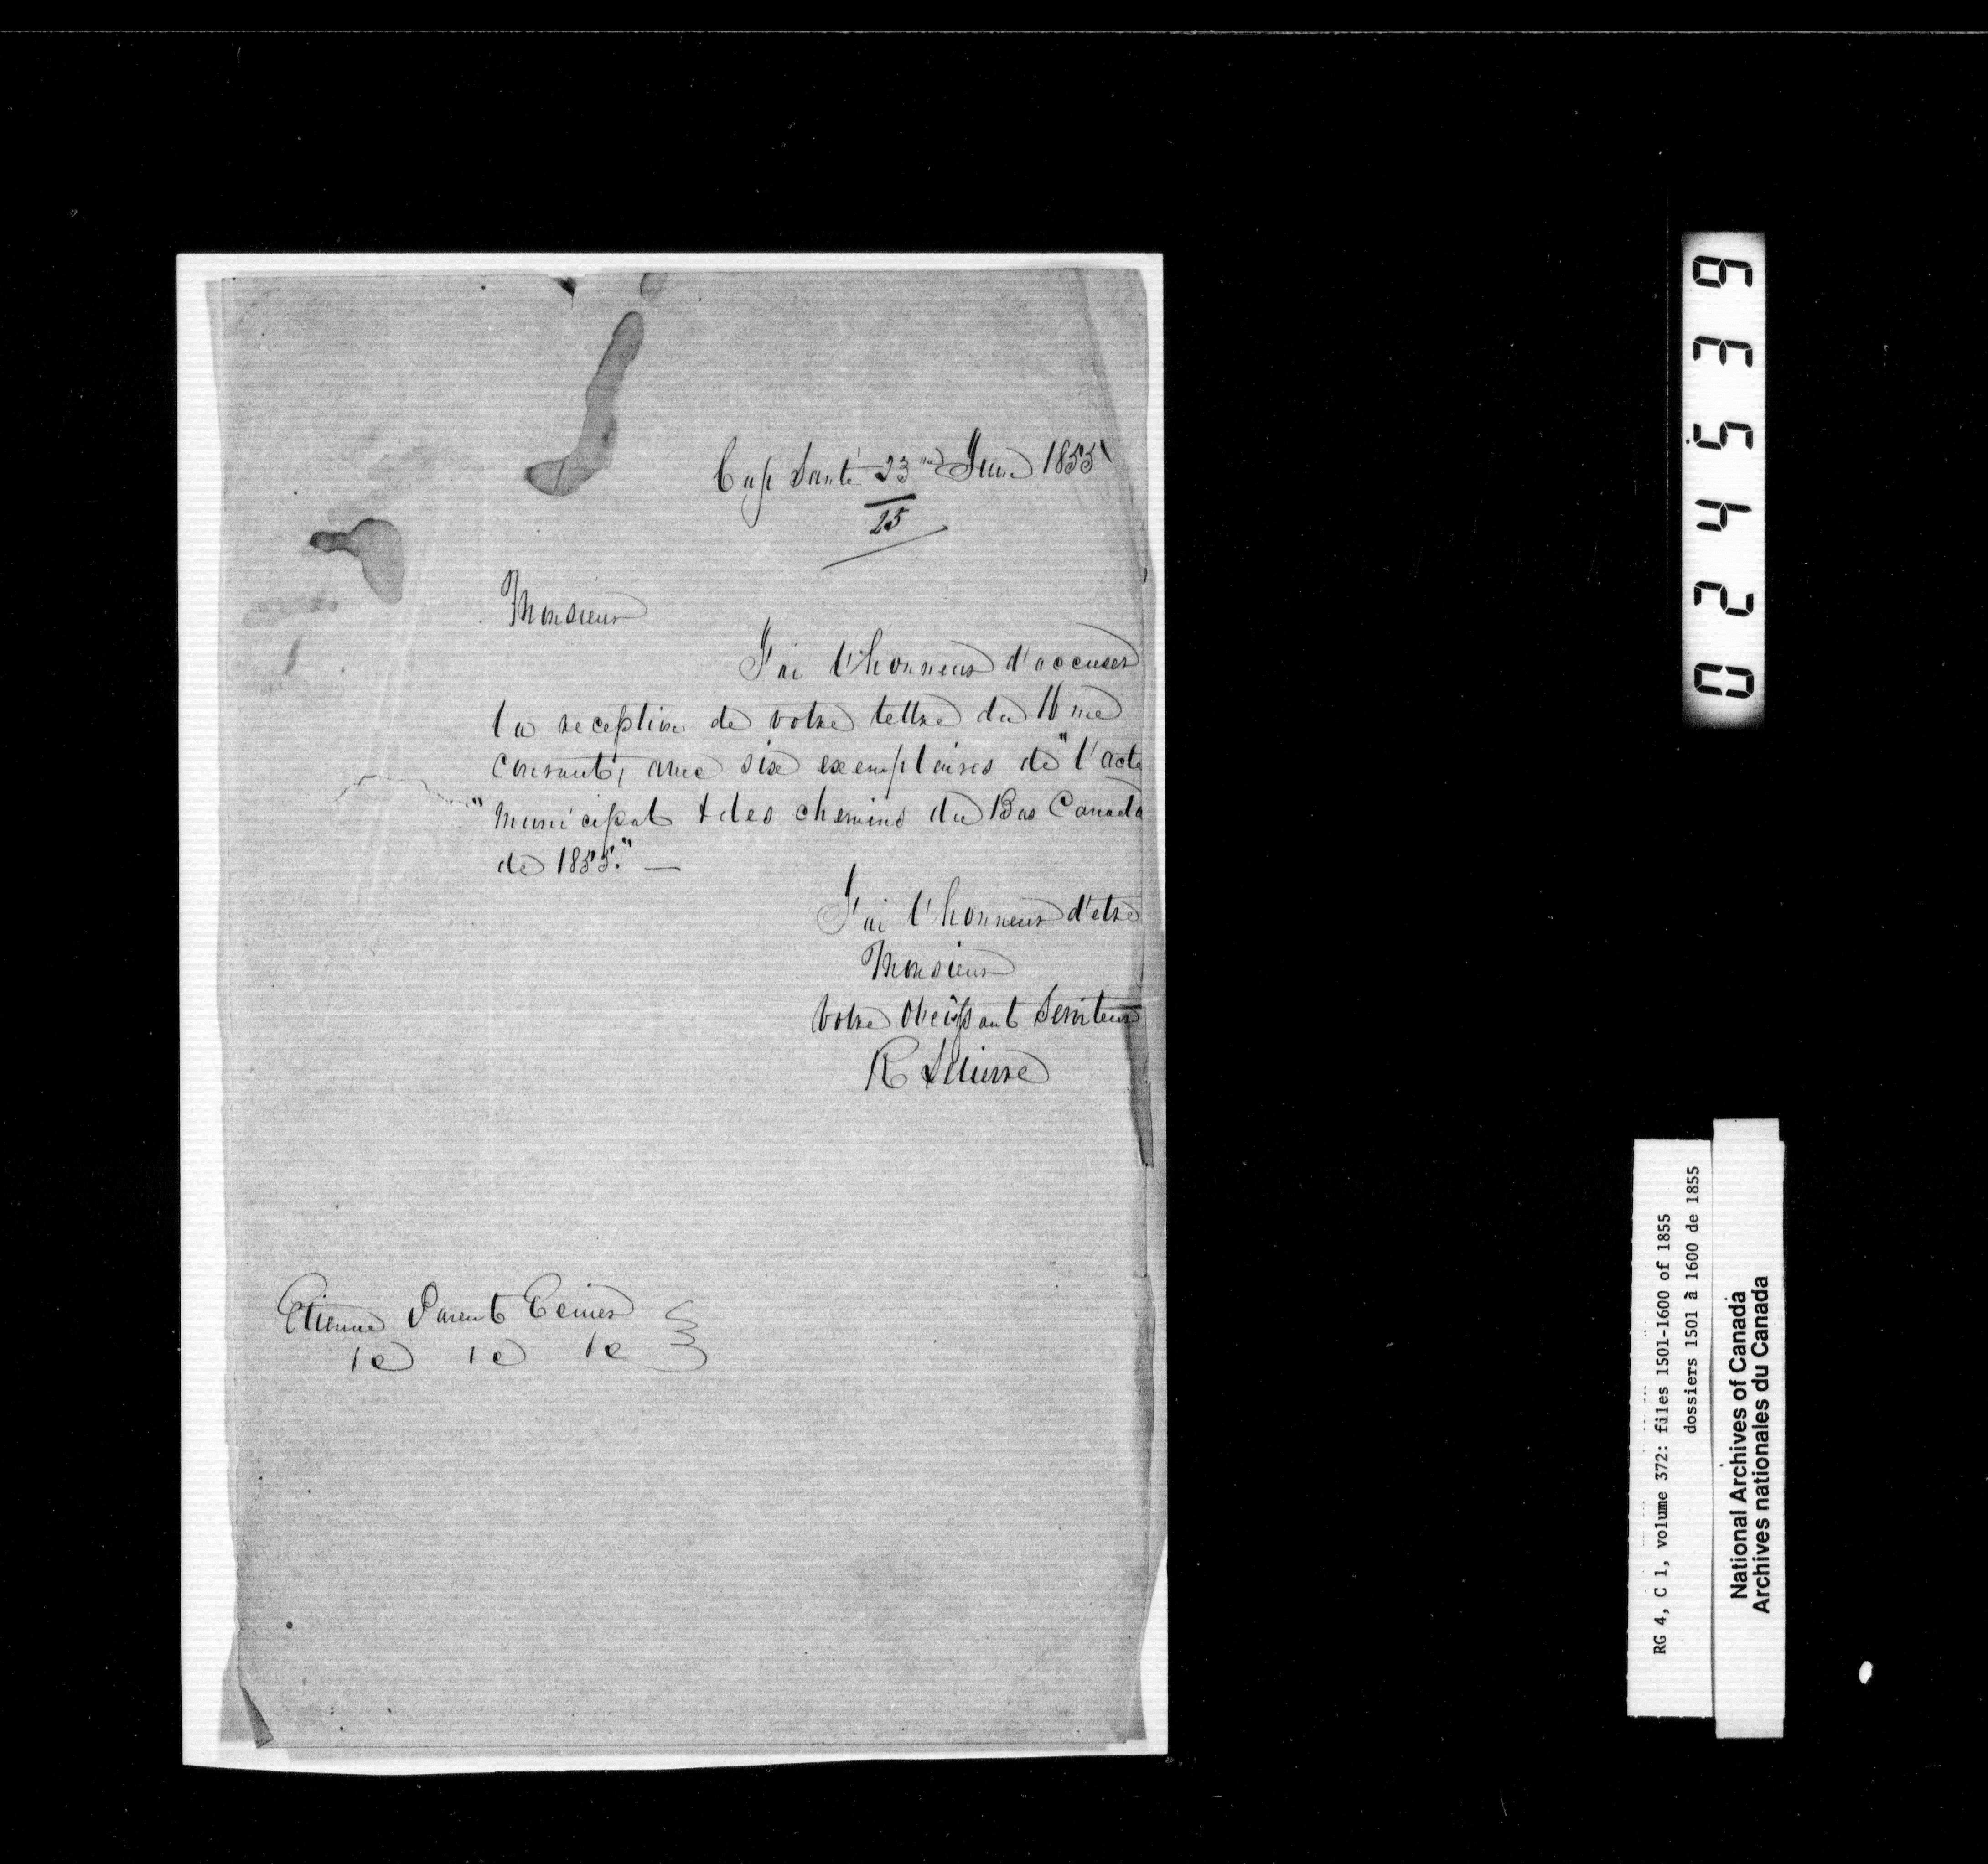 Cap Santé 23 me Juin 1855
25
Monsieur
J'ai l'honneur d'accuser
la reception de votre lettre du 16 me
courant, avec six exemplaires de "l'acte
"municipal & des chemins du Bas Canada
de 1855." —
J'ai l'honneur d'etre
Monsieur
Votre Obeissant Serviteur
R
Etienne Parent Ecuier
&c &c &c
024539
RG 4, C 1, volume 372: files 1501-1600 of 1855
dossiers 1501 à 1600 de 1855
National Archives of Canada
Archives nationales du Canada